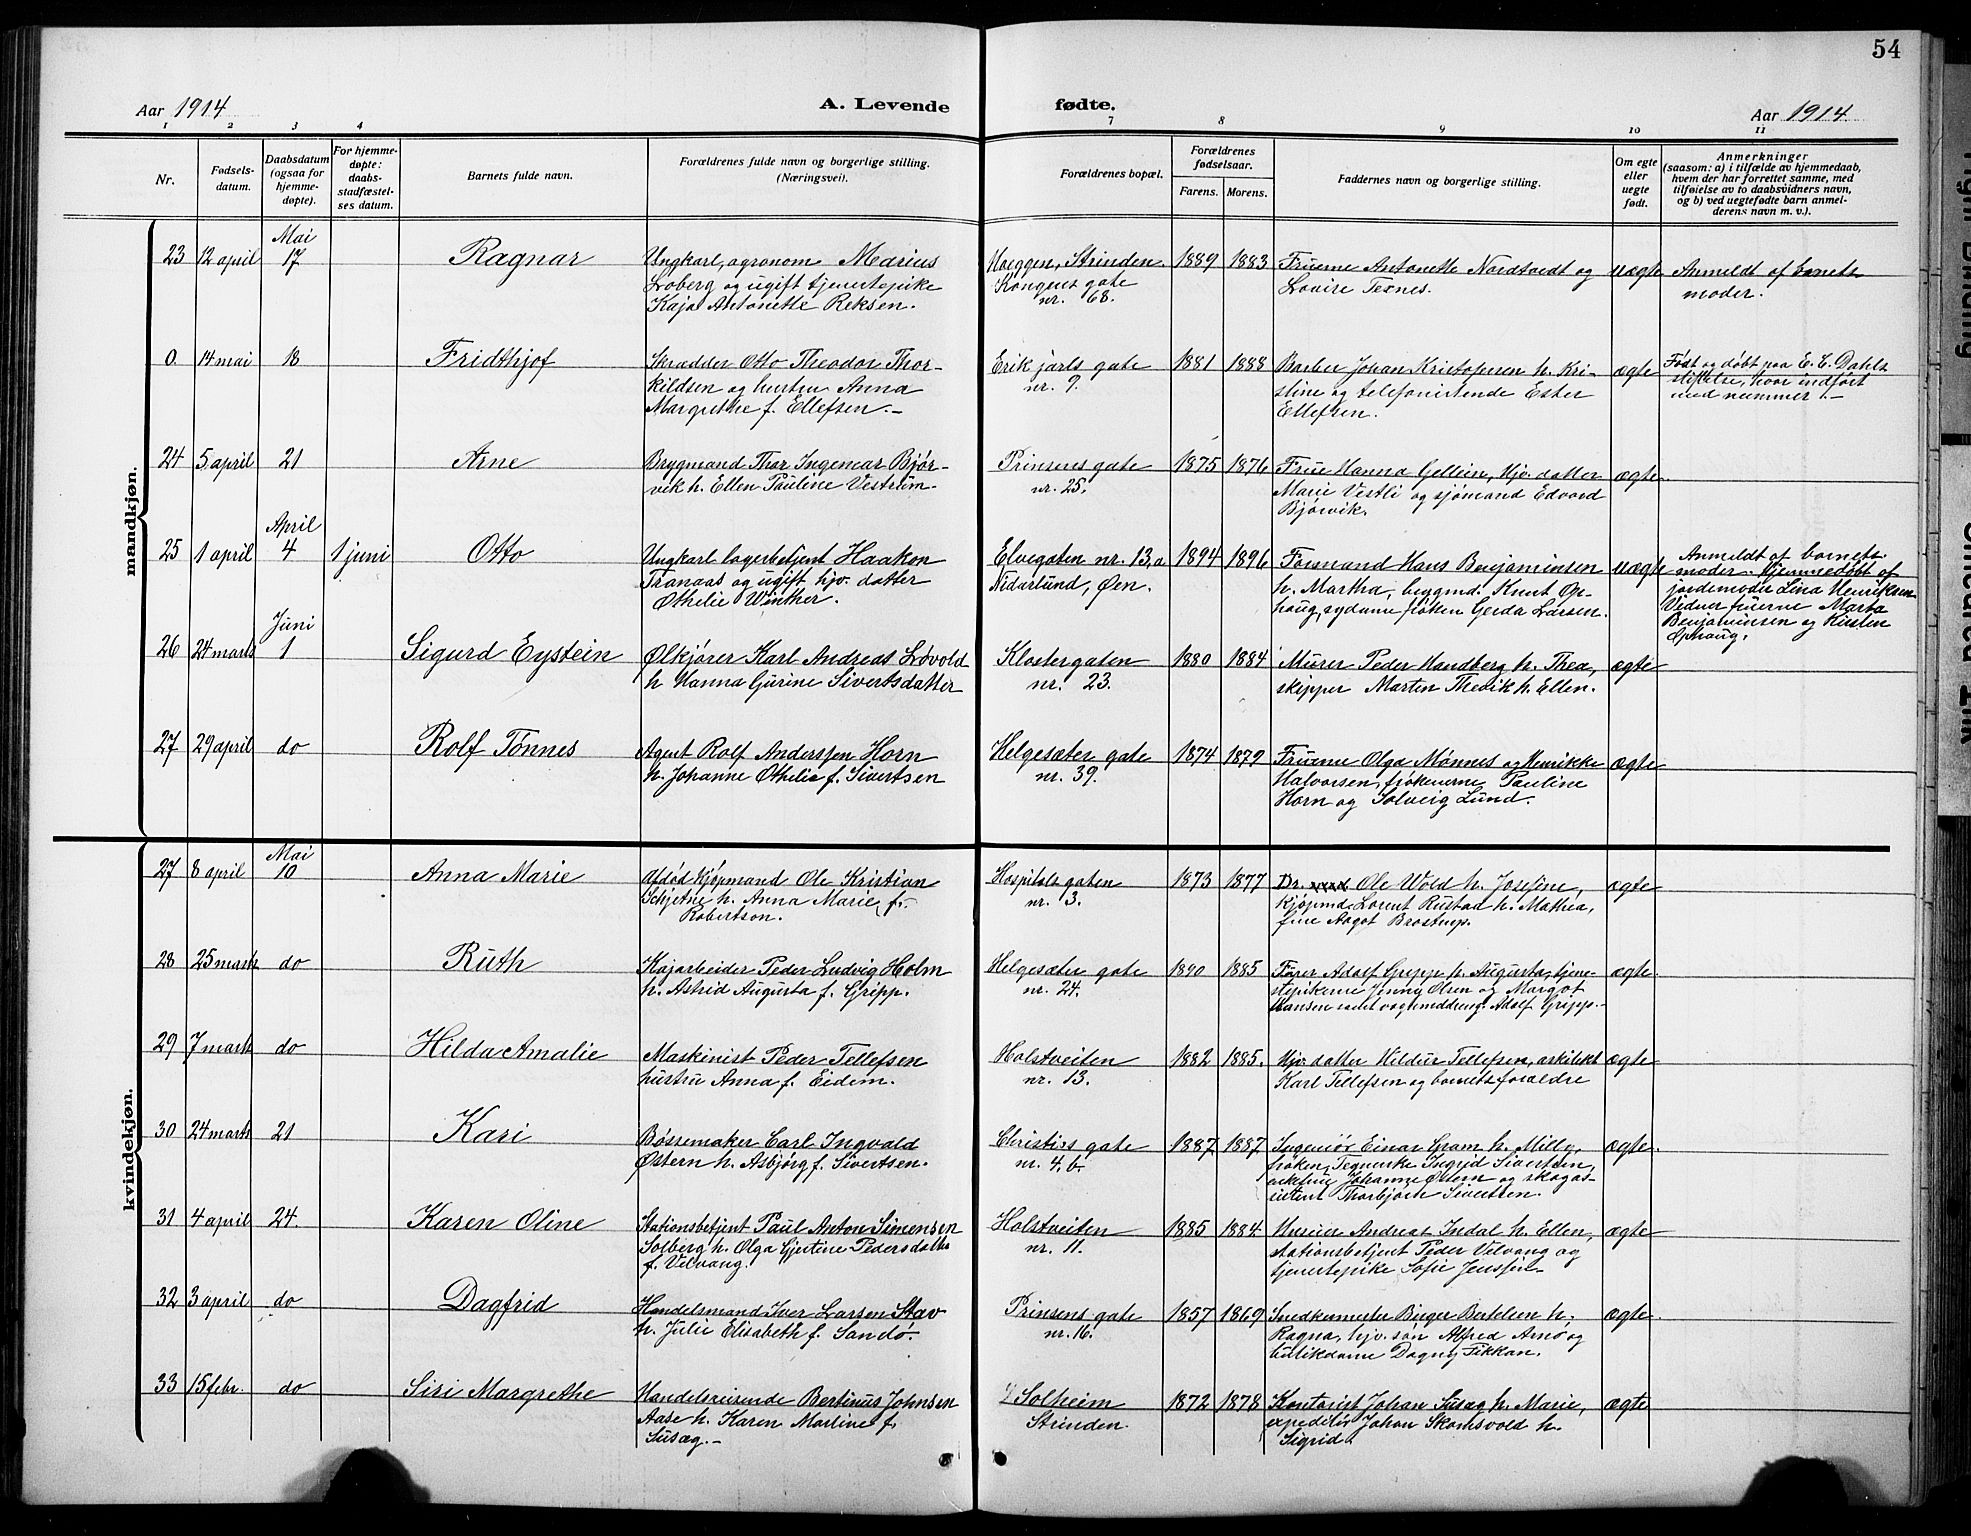 54
Aar 1914
A. Levende
fødte.
Aar 1914
1 2 3 4 7 8 9 10 11
Nr.
Fødselsdatum.
Daabsdatum
(ogsaa for
hjemmedøpte).
For hjemmedøpte:
daabsstadfæstelses datum.
Barnets fulde navn.
Forældrenes fulde navn og borgerlige stilling.
(Næringsvei).
Forældrenes bopæl.
Forældrenes
fødselsaar.
Farens. Morens.
Faddernes navn og borgerlige stilling.
Om egte
eller
uegte
født.
Anmerkninger
(saasom: a) i tilfælde av hjemmedaab,
hvem der har forrettet samme, med
tilføielse av to daabsvidners navn,
og b) ved uegtefødte barn anmelderens navn m. v.).
mandkjøn.
23 12 april Mai 17 Ragnar
Ungkarl, agronom Marius
Loberg og ugift tjenestepike
Kaja Antonette Reksen.
Uveggen, Strinden
Kongens gate
nr. 68.
1889 1883
Fruerne Antonette Nordtvedt og
Lovise Texnes.
uægte
Anmeldt af barnets
moder.
0. 14 mai 18 Fridthjof
Skrædder Otto Theodor Thor-
kildsen og hustru Anna
Margrethe f. Ellefsen.-
Erik jarls gate
nr. 9.
1881 1888
Barber Johan Kristofersen h. Kri-
stine og telefonistinde Ester
Ellefsen.
ægte
Født og døbt paa E. C. Dahls
stiftelse, hvor indført
med nummer 1.-
24 5 april 21 Arne
Brygmand Thor Ingemar Bjør-
vik h. Ellen Pauline Vestrum.
Prinsens gate
nr. 25.
1875 1876
Frue Hanna Gellein, hjv. datter
Marie Vestli og sjømand Edvard
Bjørvik.
ægte.
25 1 april April 4 1 juni Otto
Ungkarl lagerbetjent Haakon
Tranaas og ugift hjv. datter
Othelie Winther.
Elvegaten nr. 13, a
Nidarlund, Øen.
1894 1896
Formand Hans Benjaminsen
h. Martha, brygmd. Knut Op-
haug, sydame frøken Gerda Larsen.
uægte
Anmeldt af barnets
moder. Hjemmedøbt af
jordemoder Lina Henriksen
Vidner fruerne Marta
Benjaminsen og Kirsten
Ophaug.
26 24 marts Juni 1 Sigurd Eystein
Ølkjører Karl Andreas Løvold
h Hanna Gurine Sivertsdatter
Klostergaten
nr. 23.
1880 1884
Murer Peder Handberg h. Thea,
skipper Marten Thevik h. Ellen.
ægte
27 29 april do Rolf Tønnes
Agent Rolf Anderssen Horn
h. Johanne Othelie f. Sivertsen
Helgesæter gate
nr. 39.
1874 1879
Fruerne Olga Mønnes og Henrikke
Halvorsen, frøkenerne Pauline
Horn og Solveig Lund.
ægte
kvindekjøn.
27 8 april Mai 10 Anna Marie
Afdød Kjøpmand Ole Kristian
Schjetne h. Anna Marie f.
Robertson.
Hospitals gaten
nr. 3.
1873 1877
Dr. Ole Wold h. Josefine,
Kjøpmd. Lorent Rustad h. Mathea,
frue Aagot Brostrup.
ægte
28 25 marts do Ruth
Kajarbeider Peder Ludvig Holm
h. Astrid Augusta f. Gripp.
Helgesæter gate
nr. 24.
1890 1885
Fører Adolf Gripp h. Augusta, tjene-
stepikerne Jenny Olsen og Margot
Hansen samt vognmddreng. Adolf Gripp.-
ægte.
29 7 marts do Hilda Amalie
Maskinist Peder Tellefsen
hustru Anna f. Eidem.
Holstveiten
nr. 13.
1882 1885.
Hjv. datter Hildur Tellefsen, arkitekt
Karl Tellefsen og barnets forældre
ægte
30 24 marts 21 Kari
Børsemaker Carl Ingvald
Østern h. Asbjørg f. Sivertsen.
Christies gate
nr. 4, b.
1887 1887
Ingeniør Einar Gram h. Milly,
frøken Ingrid Sivertsen,
enkefrue Johanne Østern og skogas-
sistent Thorbjørn Sivertsen.
ægte.
31 4 april 24. Karen Oline
Stationsbetjent Paul Anton Simensen
Solberg h. Olga Gjertine Pedersdatter
f. Velvang.
Holstveiten
nr. 11.
1885 1884.
Murer Andreas Indal h. Ellen,
stationsbetjent Peder Velvang og
tjenestepike Sofie Jenssen.-
ægte
32 3 april do Dagfrid
Handelsmand Iver Larsen Stav
h. Julie Elisabeth f. Sandø.-
Prinsens gate
nr. 16.
1857 1869
Snedkermester Birger Bertelsen h.
Ragna, hjv. søn Alfred Arnø og
butikdame Dagny Fikkan.
ægte.
33 15 febr. do Siri Margrethe
Handelsreisende Bertinus Johnsen
Aase h. Karen Martine f.
Susæg.-
Solheim
Strinden.
1872 1878
Kontorist Johan Susæg h. Marie,
expeditør Johan Skomsvold h.
Sigrid.
ægte